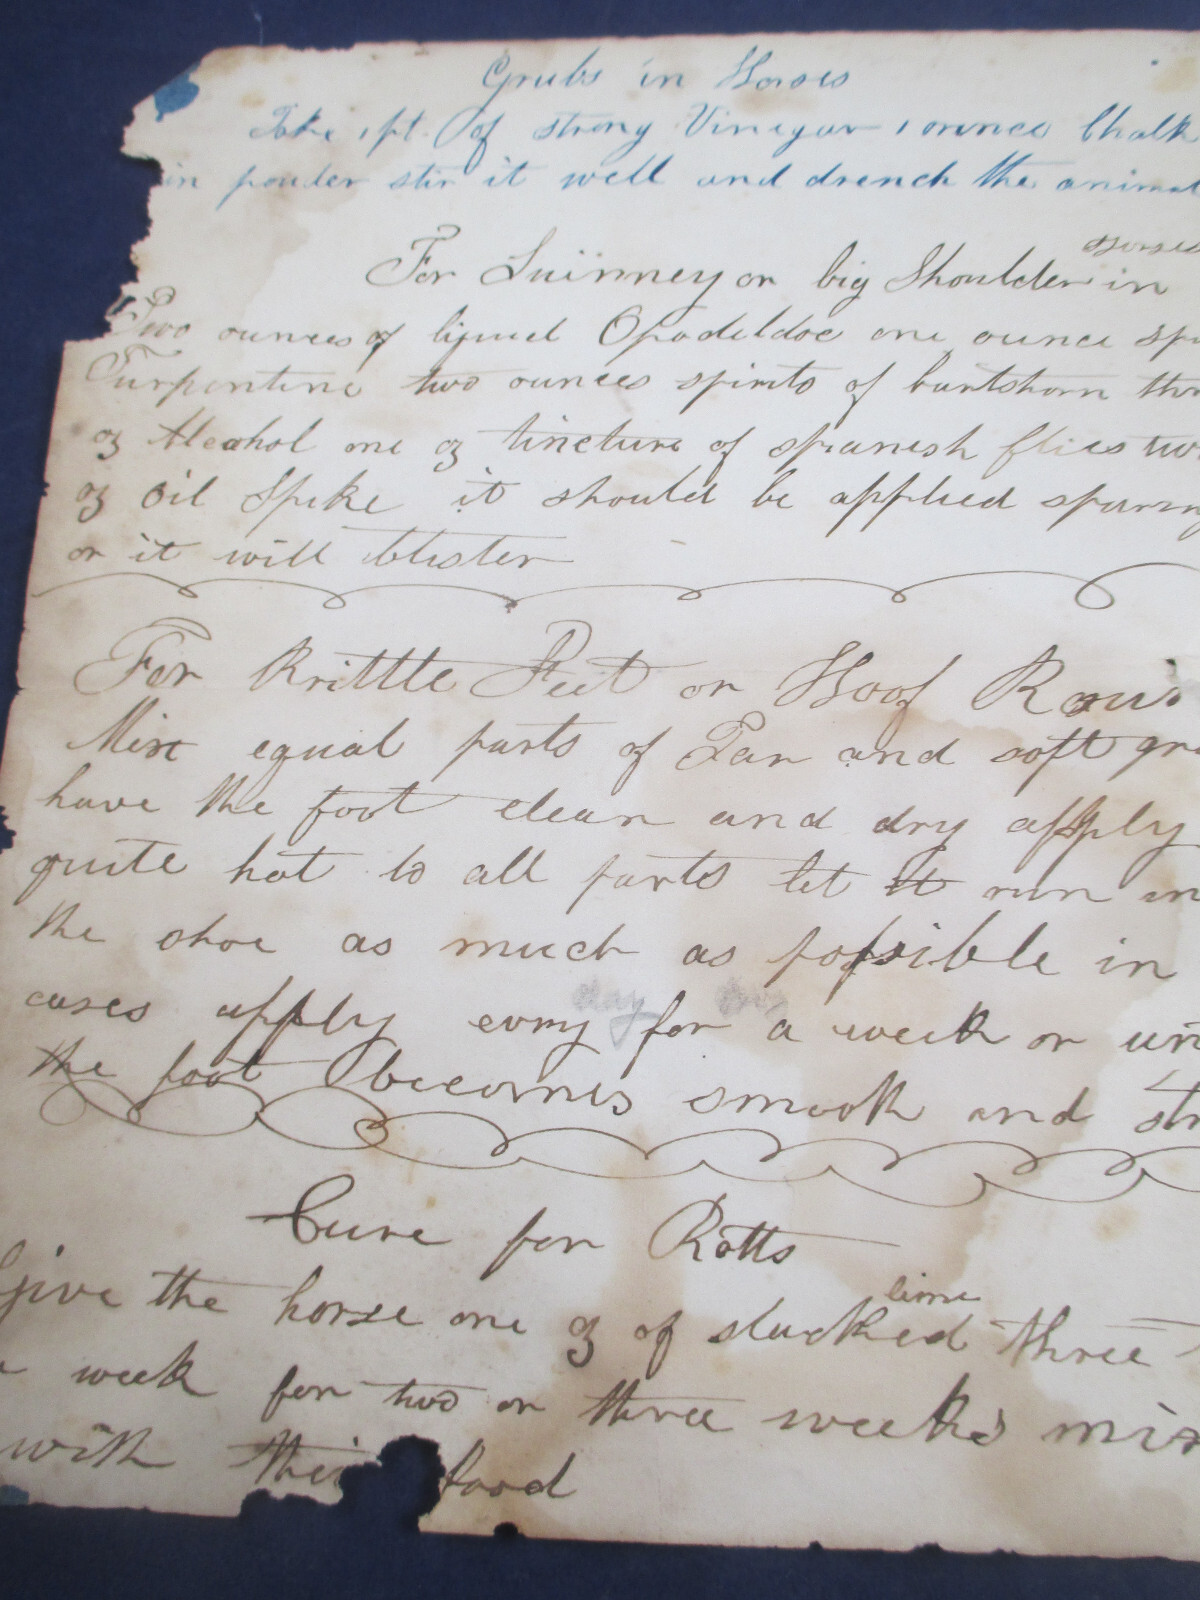 Grubs in Horses
Take 1 pt. of strong Vinegar 1 ounce Chalk
in pouder stir it well and drench the animal
horses
For Swinney or big Shoulder in
Two ounces of liquid Opodeldoc one ounce spi
Turpentine two ounces spirits of hartshorn thr
oz Alcohol one oz tincture of spanish flies two
oz Oil Spike it should be applied sparing
or it will blister
For Brittle Feet or Hoof
Mix equal parts of Tar and soft gre
have the foot clean and dry apply
quite hot to all parts let it run in
the shoe as much as possible in
day
cases apply evry for a week or un
the foot becomes smooth and str
Cure for Botts
lime
Give the horse one oz of slacked three
a week for two or three weeks mix
with thei food